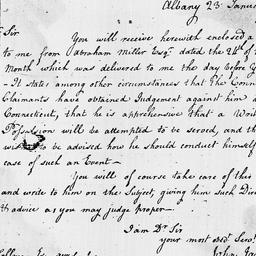 Albany 23. Januar
Sir
You will receive herewith enclosed a
to me from Abraham Miller Esqr. dated the 24th of
Month which was delivered to me the day before y
- It states among other circumstances that The Conn
Claimants have obtained Judgement against him a
Connecticut, that he is apprehensive that a Writ
Possession will be attempted to be served, and th
wishes to be advised how he should conduct himself
case of such an Event –
You will of course take care of this
and write to him on the Subject, giving him such Dire
& advice as you may judge proper –
I am Dr Sir
your most obedt. Servt.
John Jay